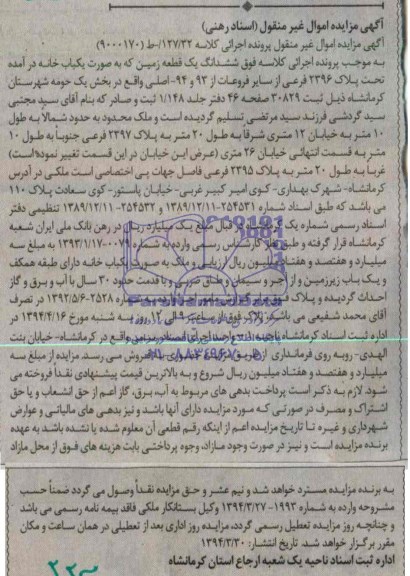 آگهی مزایده اموال غیر منقول (اسناد رهنی)
آگهی مزایده اموال غیر منقول پرونده اجرائی کلاسه ۱۲۷/۳۲/ط (۹۰۰۰۱۷۰)
به موجب پرونده اجرائی کلاسه فوق ششدانگ یک قطعه زمین که به صورت یکباب خانه در آمده
تحت پلاک ۲۳۹۶ فرعی از سایر فروعات از ۹۳ و ۹۴- اصلی واقع در بخش یک حومه شهرستان
کرمانشاه ذیل ثبت ۳۰۸۲۹ صفحه ۴۶ دفتر جلد ۱/۱۴۸ ثبت و صادر که بنام آقای سید مجتبی
سید گردشی فرزند سید مرتضی تسلیم گردیده است و ملک محدود به حدود شمالا به طول
۱۰ متر به خیابان ۱۲ متری شرقا به طول ۲۰ متر به پلاک ۲۳۹۷ فرعی جنوبا به طول ۱۰
متر به قسمت انتهائی خیابان ۲۶ متری (عرض این خیابان در این قسمت تغییر نموده است)
غربا به طول ۲۰ متر به پلاک ۲۳۹۵ فرعی فاصل جهات پی اختصاصی است ملکی در آدرس
کرمانشاه- شهرک بهداری- کوی امیر کبیر غربی- خیابان پاستور- کوی سعادت پلاک ۱۱۰
می باشد که طبق اسناد شماره ۲۵۴۵۳۱-۱۳۸۹/۱۲/۱۱ و ۲۵۴۵۳۲-۱۳۸۹/۱۲/۱۱ تنظیمی دفتر
اسناد رسمی شماره در قبال مبلغ یک میلیارد ریال در رهن بانک ملی ایران شعبه
کرمانشاه قرار گرفته و طبق نظر کارشناس رسمی وارده به شماره ۰۰۷۹-۱۳۹۳/۱/۱۷ به مبلغ سه
میلیارد و هفتصد و هفتاد میلیون ریال ارزیابی و ملک به صورت یکباب خانه دارای طبقه همکف
و یک باب زیرزمین و از آجر و سیمان و طاق ضربی و با قدمت حدود ۳۰ سال با آب و برق و گاز
احداث گردیده و پلاک فوق برابر گزارش مامور اجرا وارده به شماره ۲۵۲۸-۱۳۹۲/۵/۶ در تصرف
آقای محمد شفیعی می باشد. پلاک فوق از ساعت ۹ الی ۱۲ روز سه شنبه مورخ ۱۳۹۴/۴/۱۶ در
اداره ثبت اسناد کرمانشاه ناحیه یک واحد اجرای اسناد رسمی واقع در کرمانشاه- خیابان بنت
الهدی- روبه روی فرمانداری از طریق مزایده حضوری به فروش می رسد. مزایده از مبلغ سه
میلیارد و هفتصد و هفتاد میلیون ریال شروع و به بالاترین قیمت پیشنهادی نقدا فروخته می
شود. لازم به ذکر است پرداخت بدهی های مربوط به آب، برق، گاز اعم از حق انشعاب و یا حق
اشتراک و مصرف در صورتی که مورد مزایده دارای آنها باشد و نیز بدهی های مالیاتی و عوارض
شهرداری و غیره تا تاریخ مزایده اعم از اینکه رقم قطعی آن معلوم شده یا نشده باشد به عهده
برنده مزایده است و نیز در صورت وجود مازاد، وجوه پرداختی بابت هزینه های فوق از محل مازاد
به برنده مزایده مسترد خواهد شد و نیم عشر و حق مزایده نقدا وصول می گردد ضمنا حسب
مشروحه وارده به شماره ۱۹۹۳-۱۳۹۴/۳/۲۷ وکیل بستانکار ملکی فاقد بیمه نامه رسمی می باشد
و چنانچه روز مزایده تعطیل رسمی گردد، مزایده روز اداری بعد از تعطیلی در همان ساعت و مکان
مقرر برگزار خواهد شد. تاریخ انتشار: ۱۳۹۴/۳/۳۰
اداره ثبت اسناد ناحیه یک شعبه ارجاع استان کرمانشاه